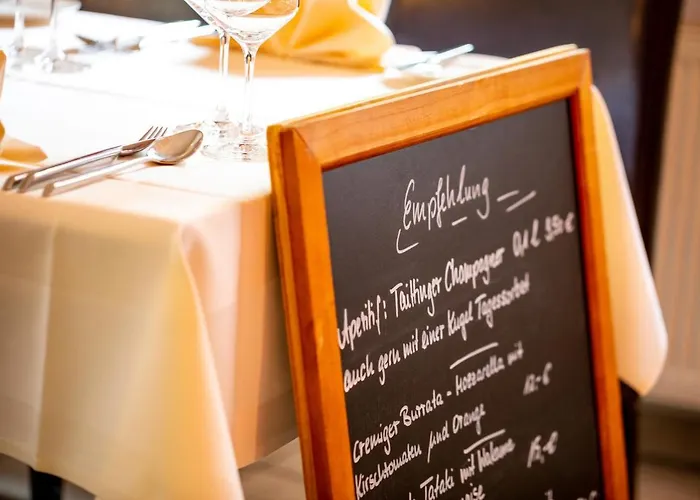 Empfehlung
Aperitif: Taittinger Champagner 0,1 l 9,90 €
auch gern mit einer Kugel Tagessorbet
Cremiger Burrata - Mozzarella mit
Kirschtomaten und Orange 12,- €
Tataki mit Wakame 15,- €